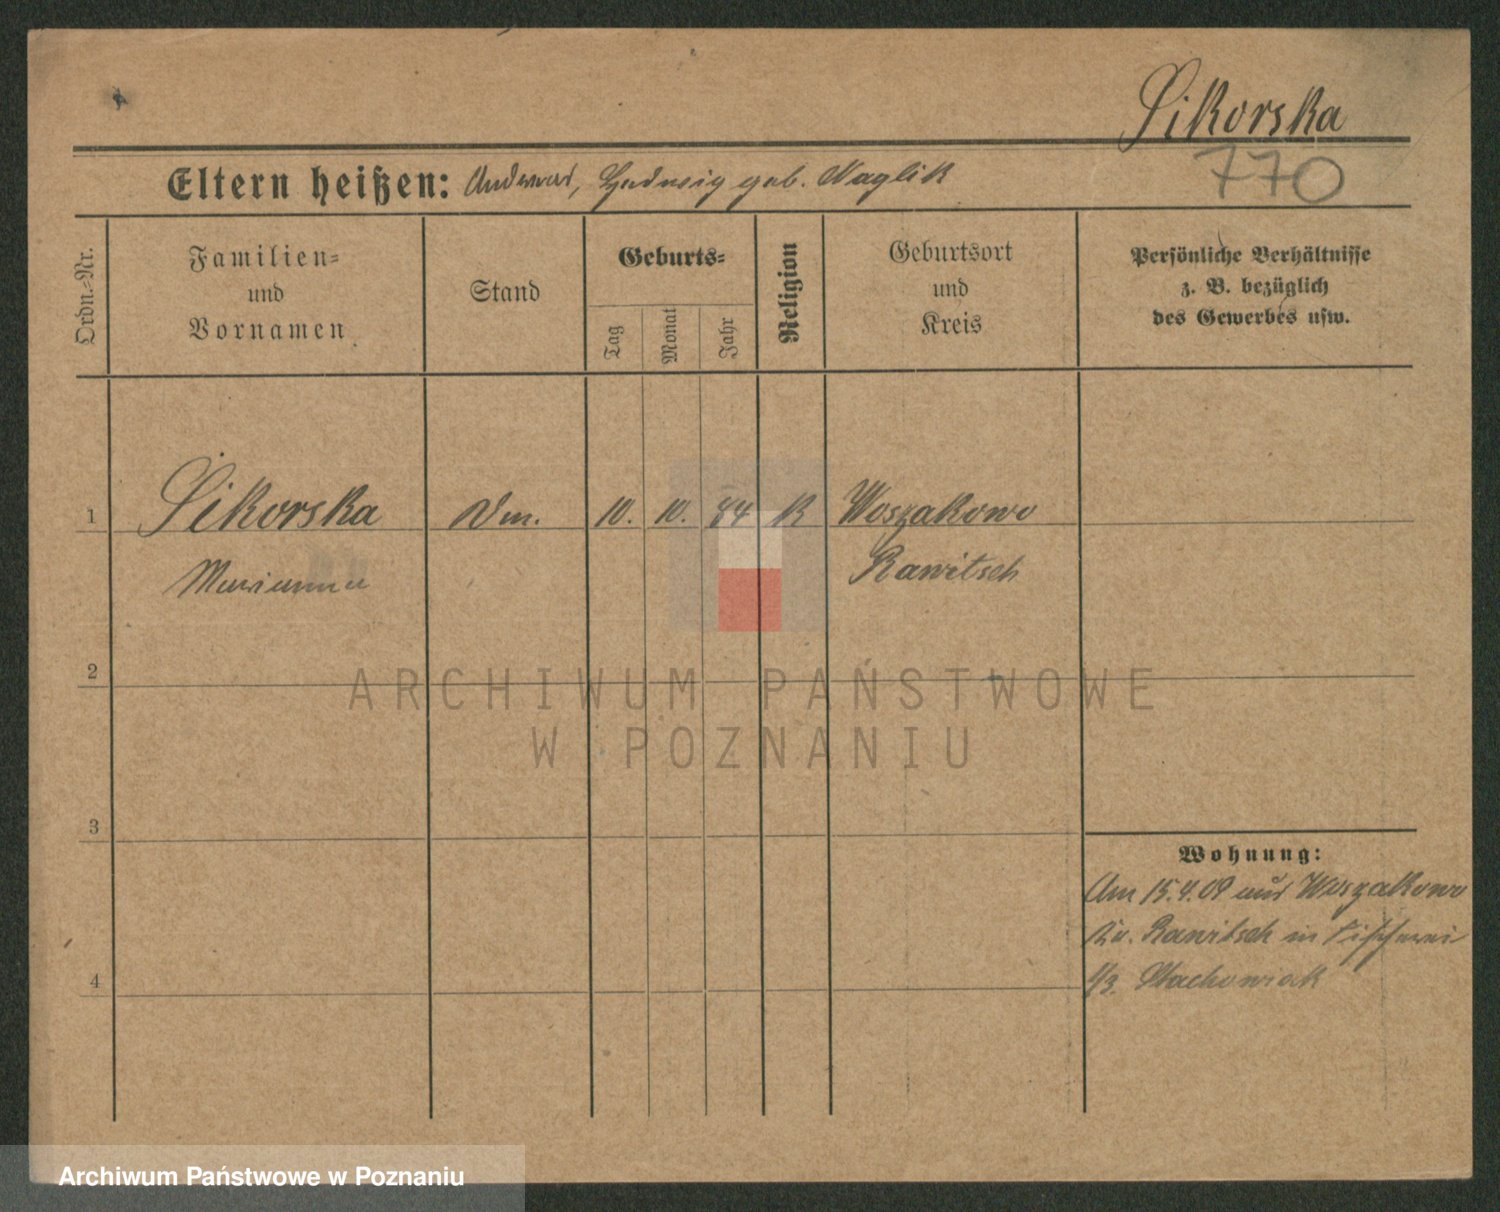 Sikorska
770
Eltern heißen: Andreas, Hedwig geb. Naglik
Ordn.-Nr.
Familien-
und
Vornamen
Stand
Geburts-
Tag
Monat
Jahr
Religion
Geburtsort
und
Kreis
Persönliche Verhältnisse
z. B. bezüglich
des Gewerbes usw.
1
Sikorska
10.
10.
K
Woszakowo
Marianna
Rawitsch
2
ARCHIWUM PAŃSTWOWE
W POZNANIU
3
Wohnung:
Am 15.4.09 aus Woszakowo
Kr. Rawitsch in
4
Stachowiak
Archiwum Państwowe w Poznaniu